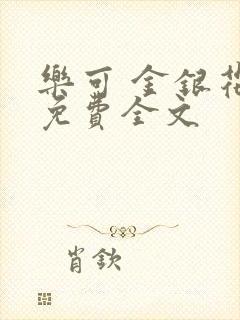 樂可 金銀花
免費全文
肖欽